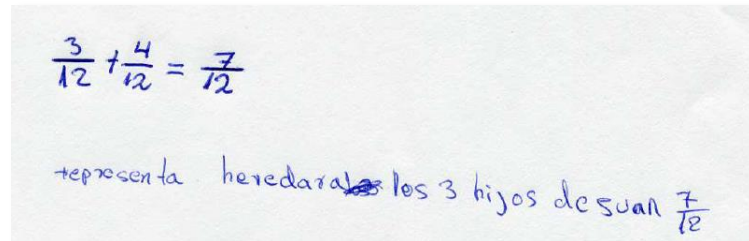 3/12 + 4/12 = 7/12
representa heredara los 3 hijos de suan 7/12